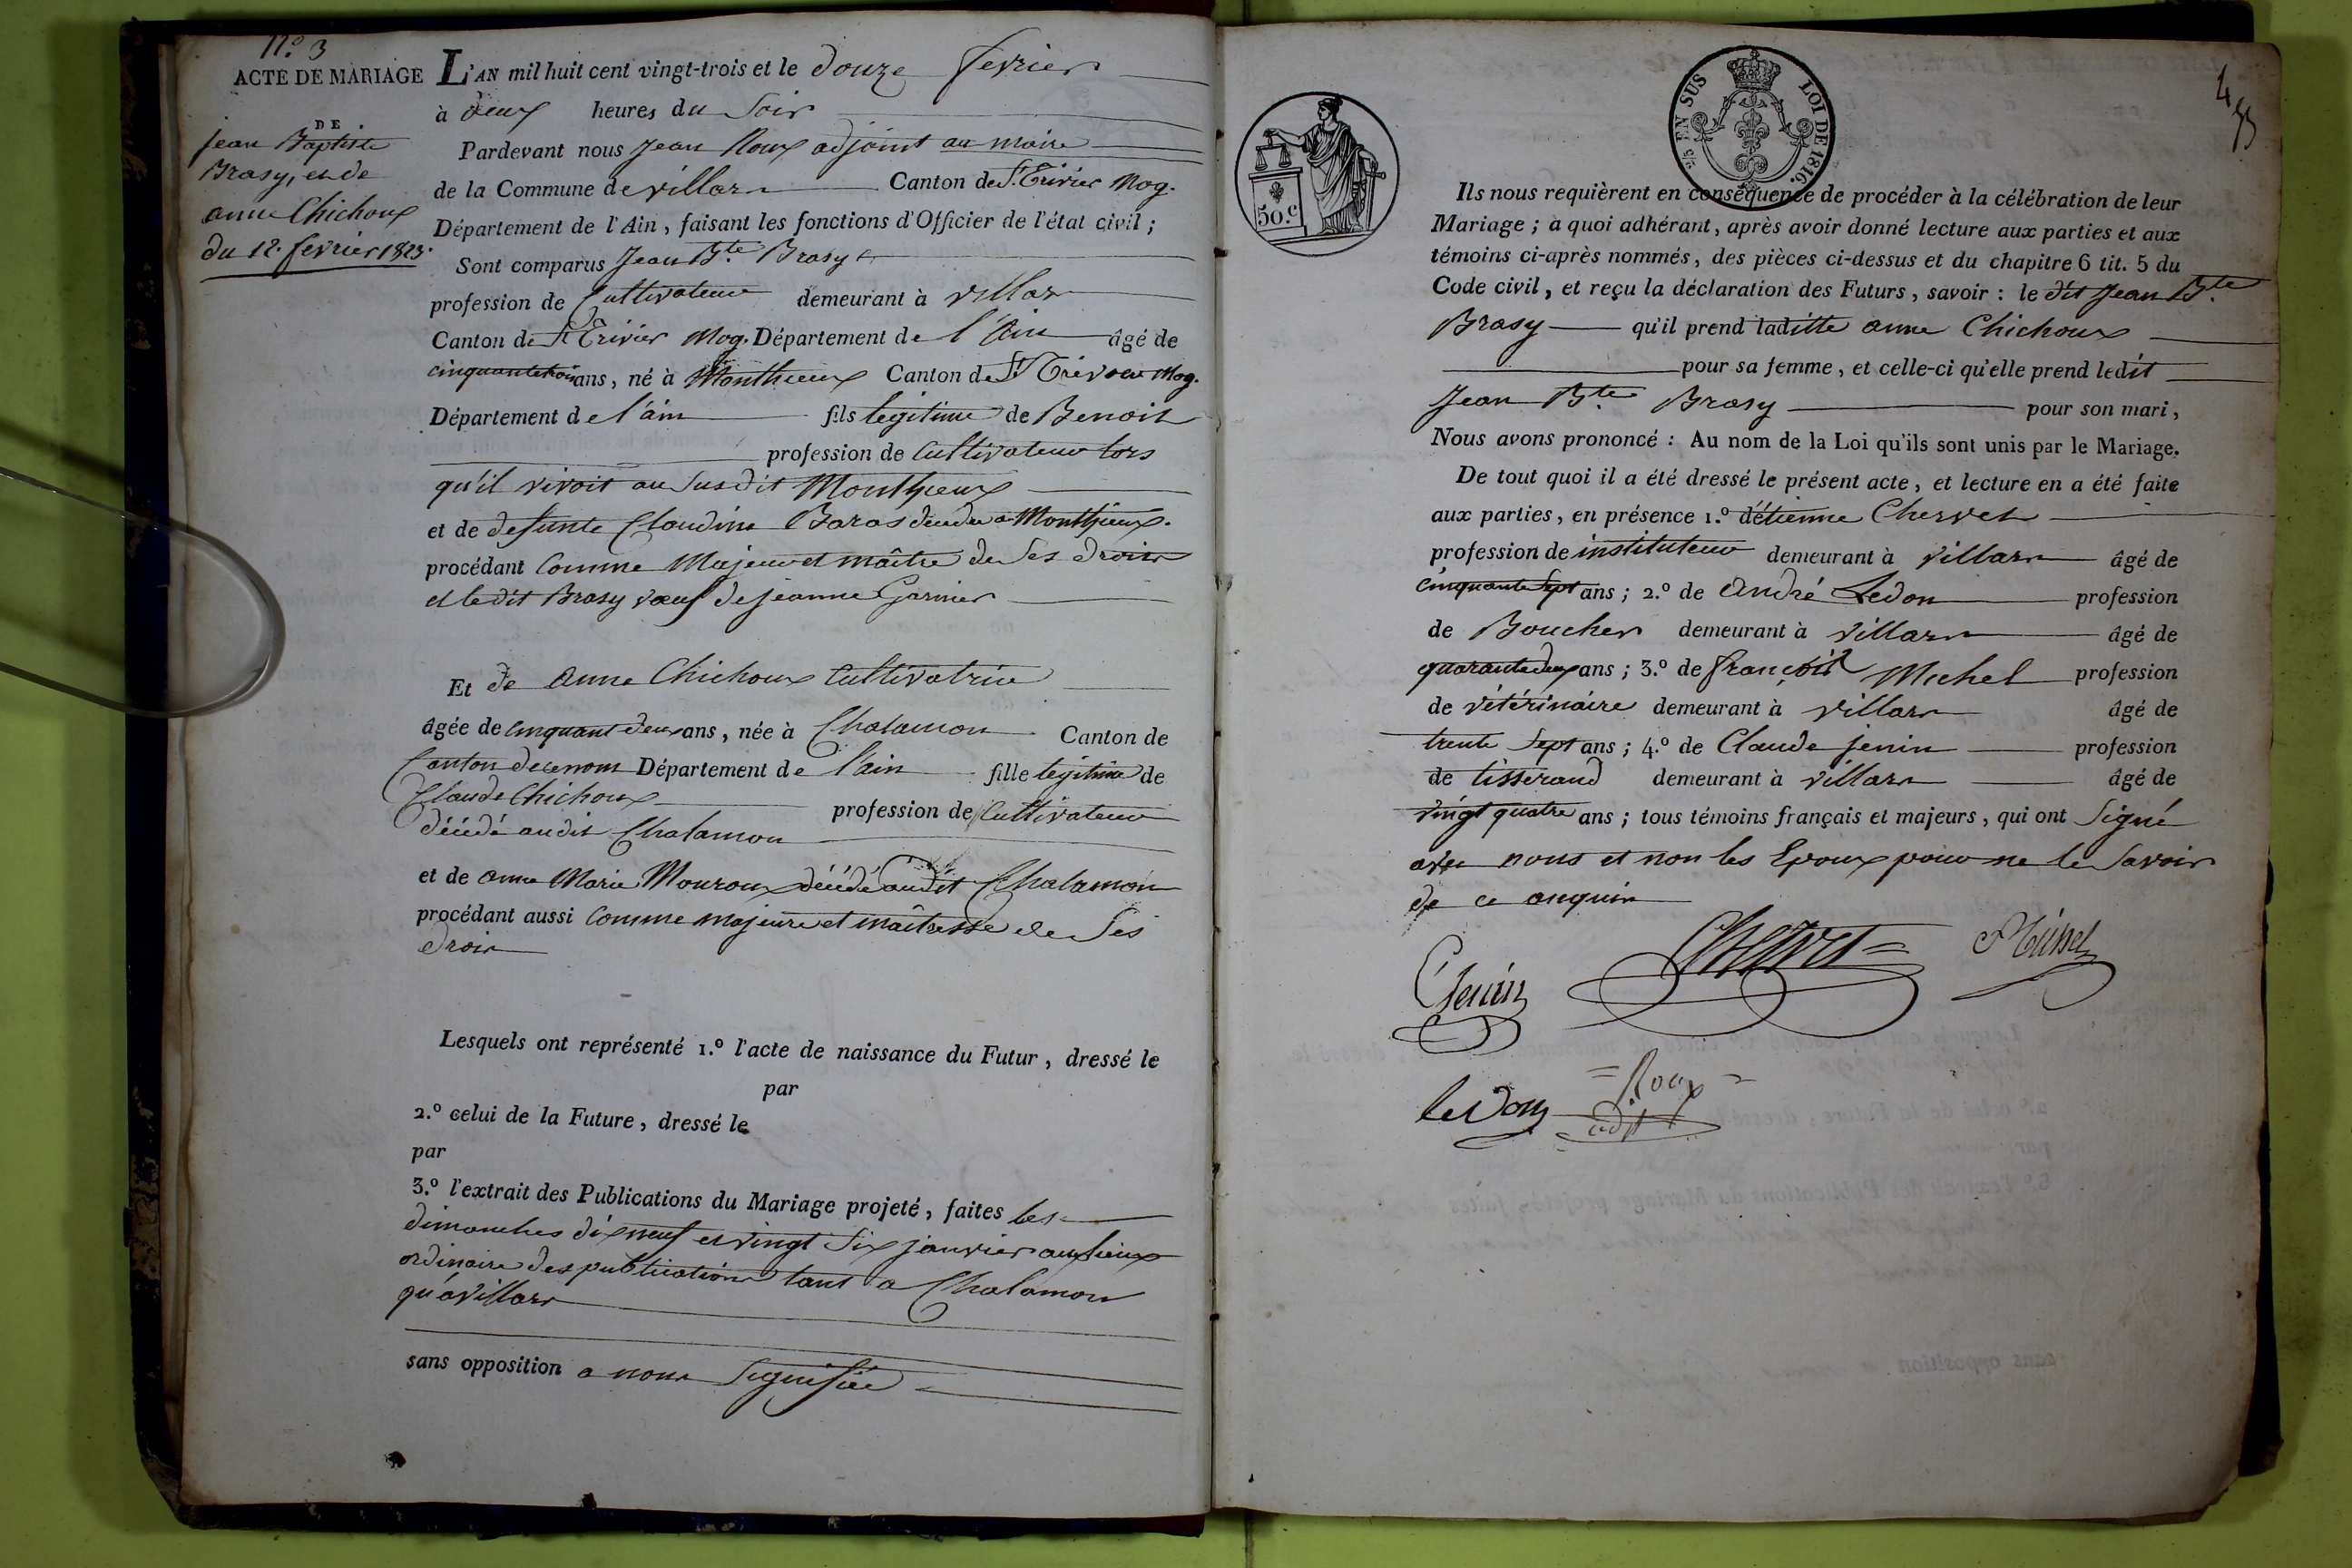 N.º 3
ACTE DE MARIAGE
DE
jean Baptiste
Brasy, et de
anne Chichoux
du 12. fevrier 1823.
L'AN mil huit cent vingt-trois et le douze fevrier
à deux heures du Soir
Pardevant nous Jean Roux adjoint au maire
de la Commune de villars Canton de St. Trivier Mog.
Département de l'Ain, faisant les fonctions d'Officier de l'état civil;
Sont comparus Jean Bte. Brasy
profession de Cultivateur demeurant à villar
Canton de St Trivier Mog. Département de l'Ain âgé de
cinquante trois ans, né à Monthieux Canton de St Trivier Mog.
Département de l'ain fils legitime de Benoit
profession de Cultivateur lors
qu'il vivoit au susdit Monthieux
et de defunte Claudine Baras décédée a Monthieux.
procédant comme Majeur et maître de Ses droits
et le dit Brasy veuf de jeanne Garnier
Et de Anne Chichoux Cultivatrice
âgée de cinquant deux ans, née à Chalamon Canton de
Canton de ce nom Département de l'ain fille legitime de
Claude Chichoux profession de Cultivateur
décédé audit Chalamon
et de anne Marie Mouroux décédé audit Chalamon
procédant aussi Comme majeure et maîtresse de Ses
droits
Lesquels ont représenté 1.º l'acte de naissance du Futur, dressé le
par
2.º celui de la Future, dressé le
par
3.º l'extrait des Publications du Mariage projeté, faites les
dimanches dixneuf et vingt Six janvier aux lieux
ordinaire des publications tant a Chalamon
qu'à villars
sans opposition a nous Signifiée
4
50.c
2/5 EN SUS LOI DE 1816.
Ils nous requièrent en conséquence de procéder à la célébration de leur
Mariage; à quoi adhérant, après avoir donné lecture aux parties et aux
témoins ci-après nommés, des pièces ci-dessus et du chapitre 6 tit. 5 du
Code civil, et reçu la déclaration des Futurs, savoir: le dit Jean Bte.
Brasy qu'il prend laditte anne Chichoux
pour sa femme, et celle-ci qu'elle prend ledit
Jean Bte. Brasy pour son mari,
Nous avons prononcé: Au nom de la Loi qu'ils sont unis par le Mariage.
De tout quoi il a été dressé le présent acte, et lecture en a été faite
aux parties, en présence 1.º d'étienne Chervet
profession de instituteur demeurant à villars âgé de
cinquante Sept ans; 2.º de André Ledon profession
de Boucher demeurant à villars âgé de
quarante deux ans; 3.º de françois Michel profession
de vétérinaire demeurant à villars âgé de
trente Sept ans; 4.º de Claude jenin profession
de tisserand demeurant à villars âgé de
vingt quatre ans; tous témoins français et majeurs, qui ont Signé
avec nous et non les Epoux pour ne le Savoir
de ce enquis
C Jenin Chervet Michel
ledon Roux
adjt